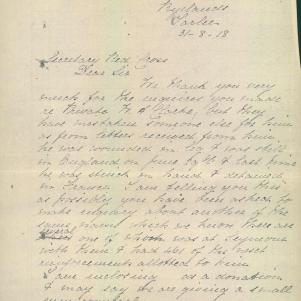 Rylands
31-8-18
Secretary Red Cross
Dear Sir
We thank you very
much for the inquiries you made
re Private but they
have mistaken someone else for him
as from letters received from him
he was wounded in leg & was still
in England on June & last time
he was struck in hand & detained
in France. I am telling you this
as possibly you have been asked to
make inquiry about another of the
same name which we know there are
several one of which was at Seymour
with them & had of the
allotted to him
I am enclosing as a donation
& may say we are giving a small